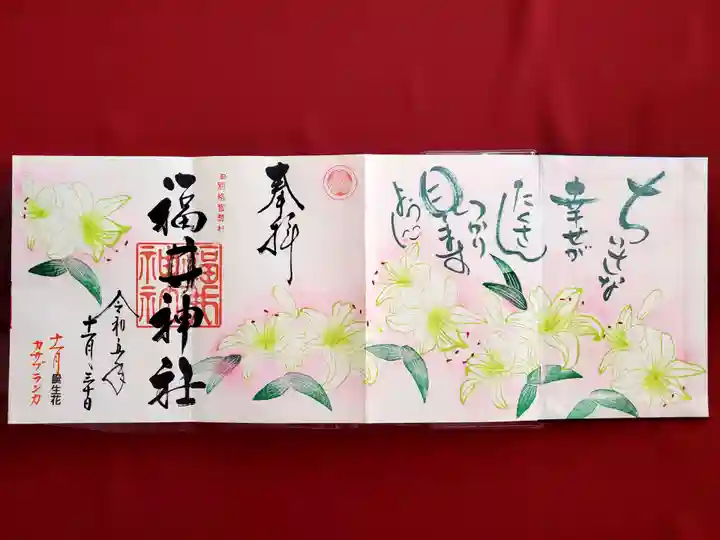 ちいさな
幸せが
たくさん
つかり
見
ますように
奉拝
別格官幣社
福井神社
福井
神社
令和五年
十一月三十日
十一月誕生花
カサブランカ